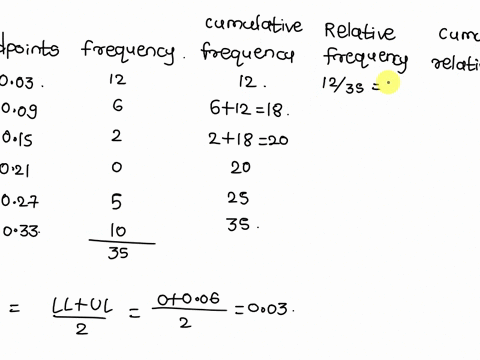 cumulative Relative cumu
dpoints frequency. frequency frequency relati
0.03. 12 12. 12/35 =
0.09 6 6+12=18.
0.15 2 2+18=20
0.21 0 20
0.27 5 25
0.33. 10 35.
35
= LL+UL/2 = 0+0.06/2 = 0.03.